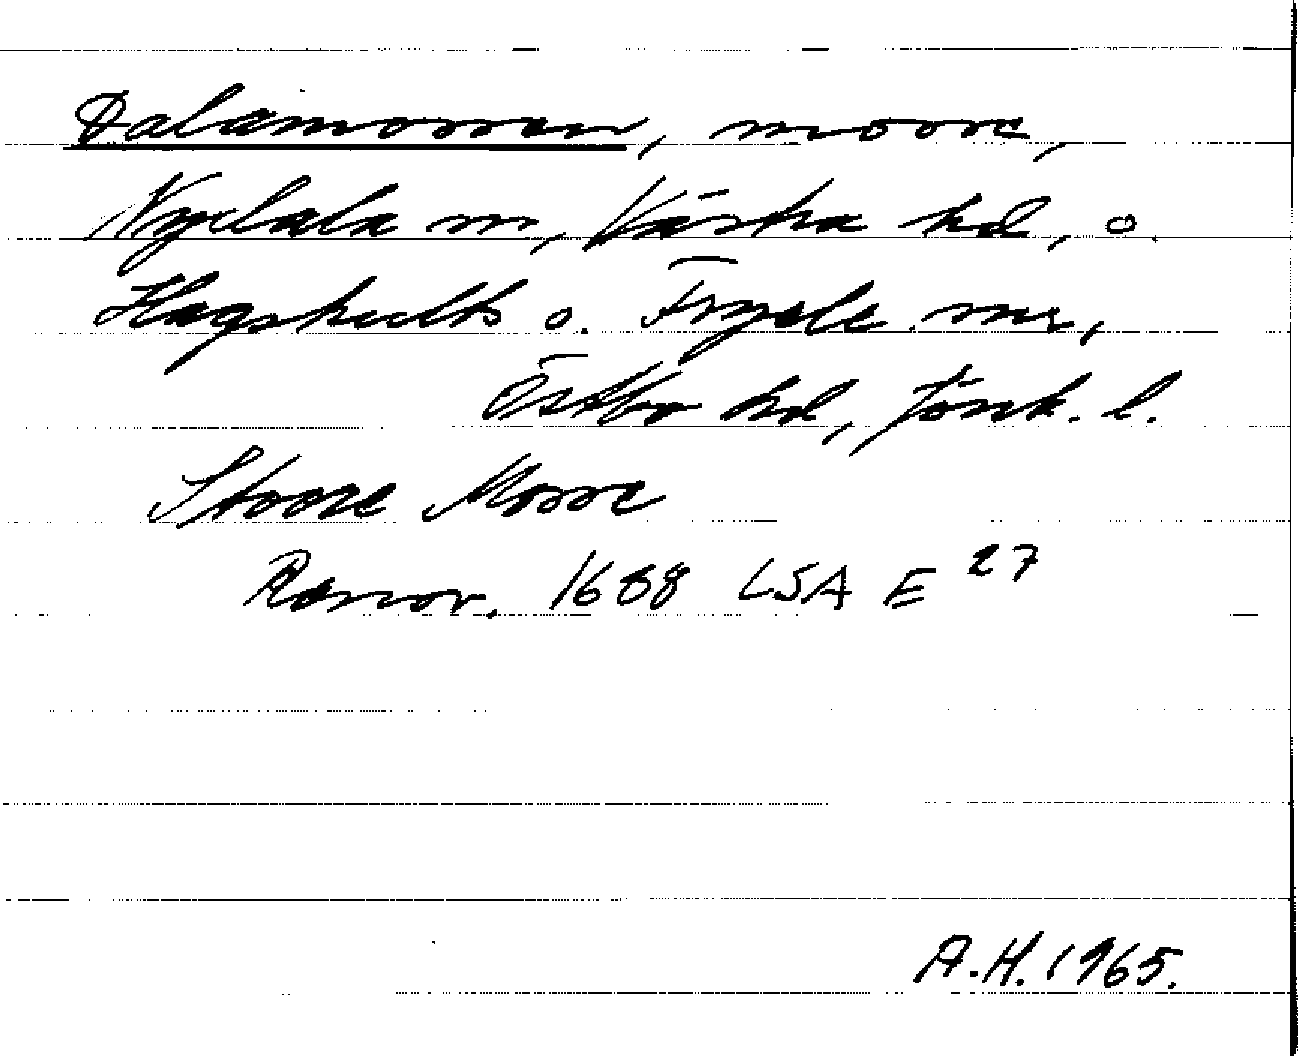 Dalamossen, mosse,
Nydala sn, Västra hd, o.
Hagshults o. Tryele snr,
Östbo hd, Jönk. l.
Stoore Mosse
Rannsr. 1688 LSA E 27
A.H. 1965.